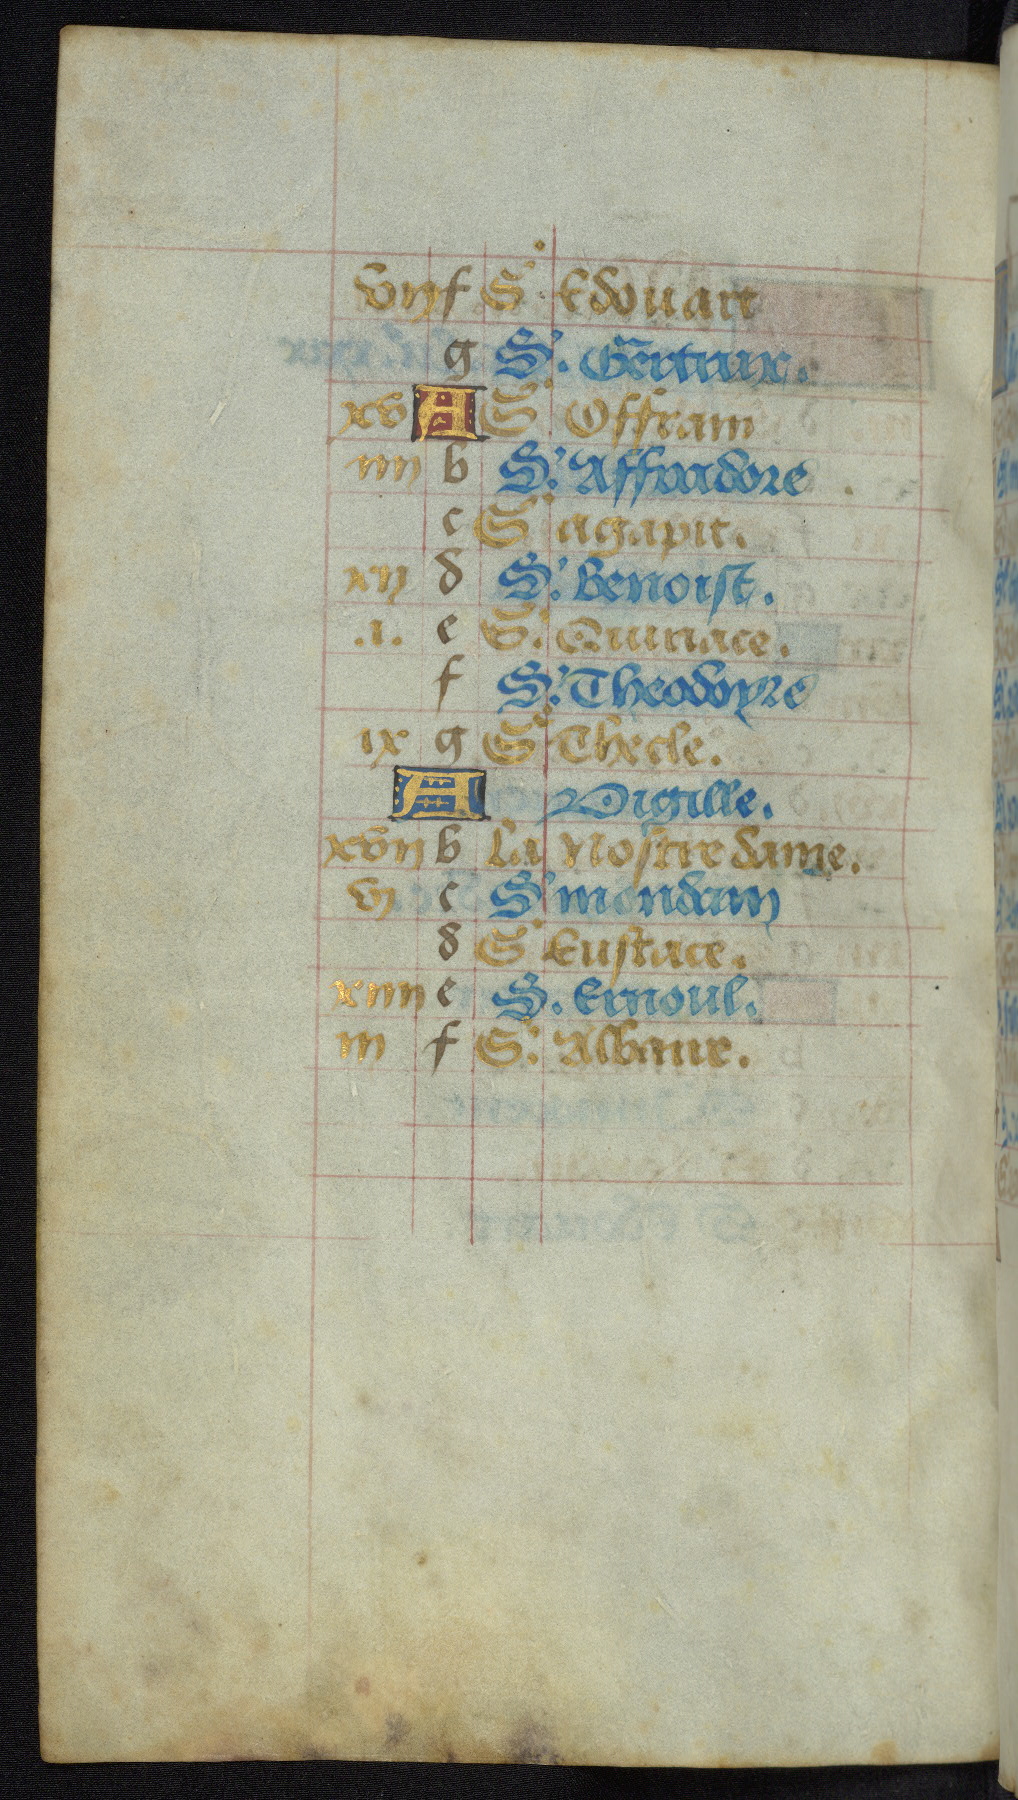 vij f S' Edouart
g S'. Gertrux.
xv A S' Offram
iiij b S.' Affrodore
c S' agapit.
xij d S.' Benoist.
.i. e S.' Quinace.
f S.' Theodoyre
ix g S' Thecle.
A Vigille.
xvij b La Nostre dame.
vj c S' mondain
d S' Eustace.
xiiij e S. Ernoul.
iij f S.' Albane.